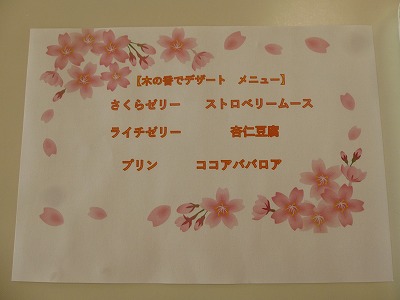 〖木の香でデザート　メニュー〗
さくらゼリー　　ストロベリームース
ライチゼリー　　　　杏仁豆腐
プリン　　　ココアババロア